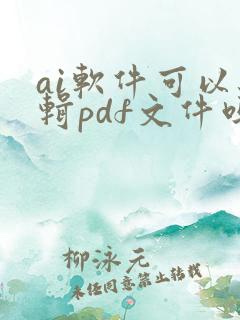 ai軟件可以
輯pdf文件
柳泳元
未任同意禁止转载